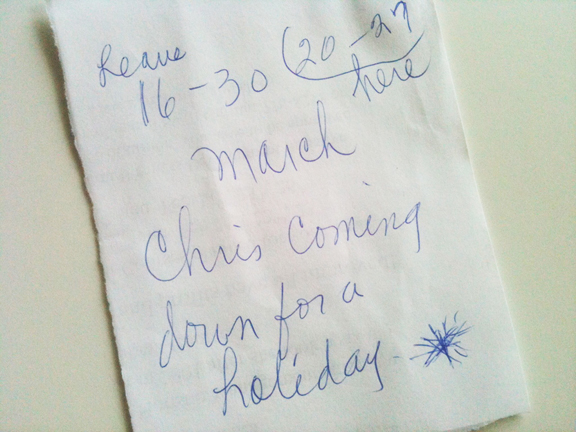 Leave
16-30 (20-27
here
March
Chris Coming
down for a
holiday